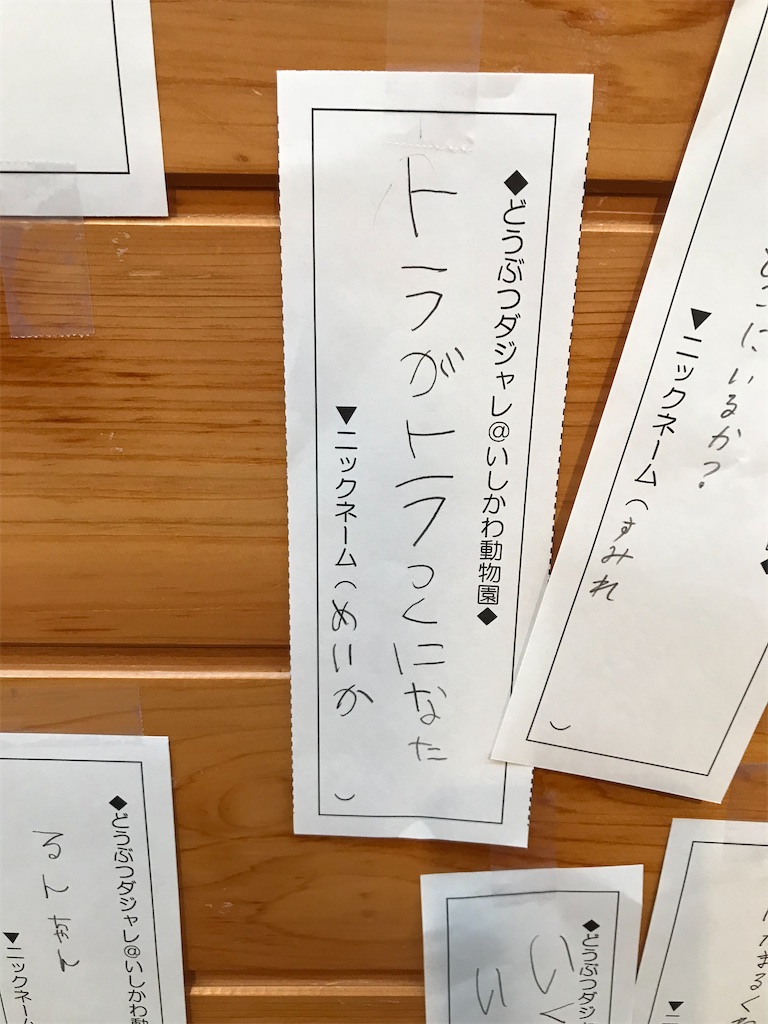 ◆どうぶつダジャレ@いしかわ動物園◆
トラがトラっくになた
▼ニックネーム(めいか)
どこにいるか?
▼ニックネーム(すみれ)
◆どうぶつダジャレ@いしかわ動
▼ニックネーム
◆どうぶつダジャ